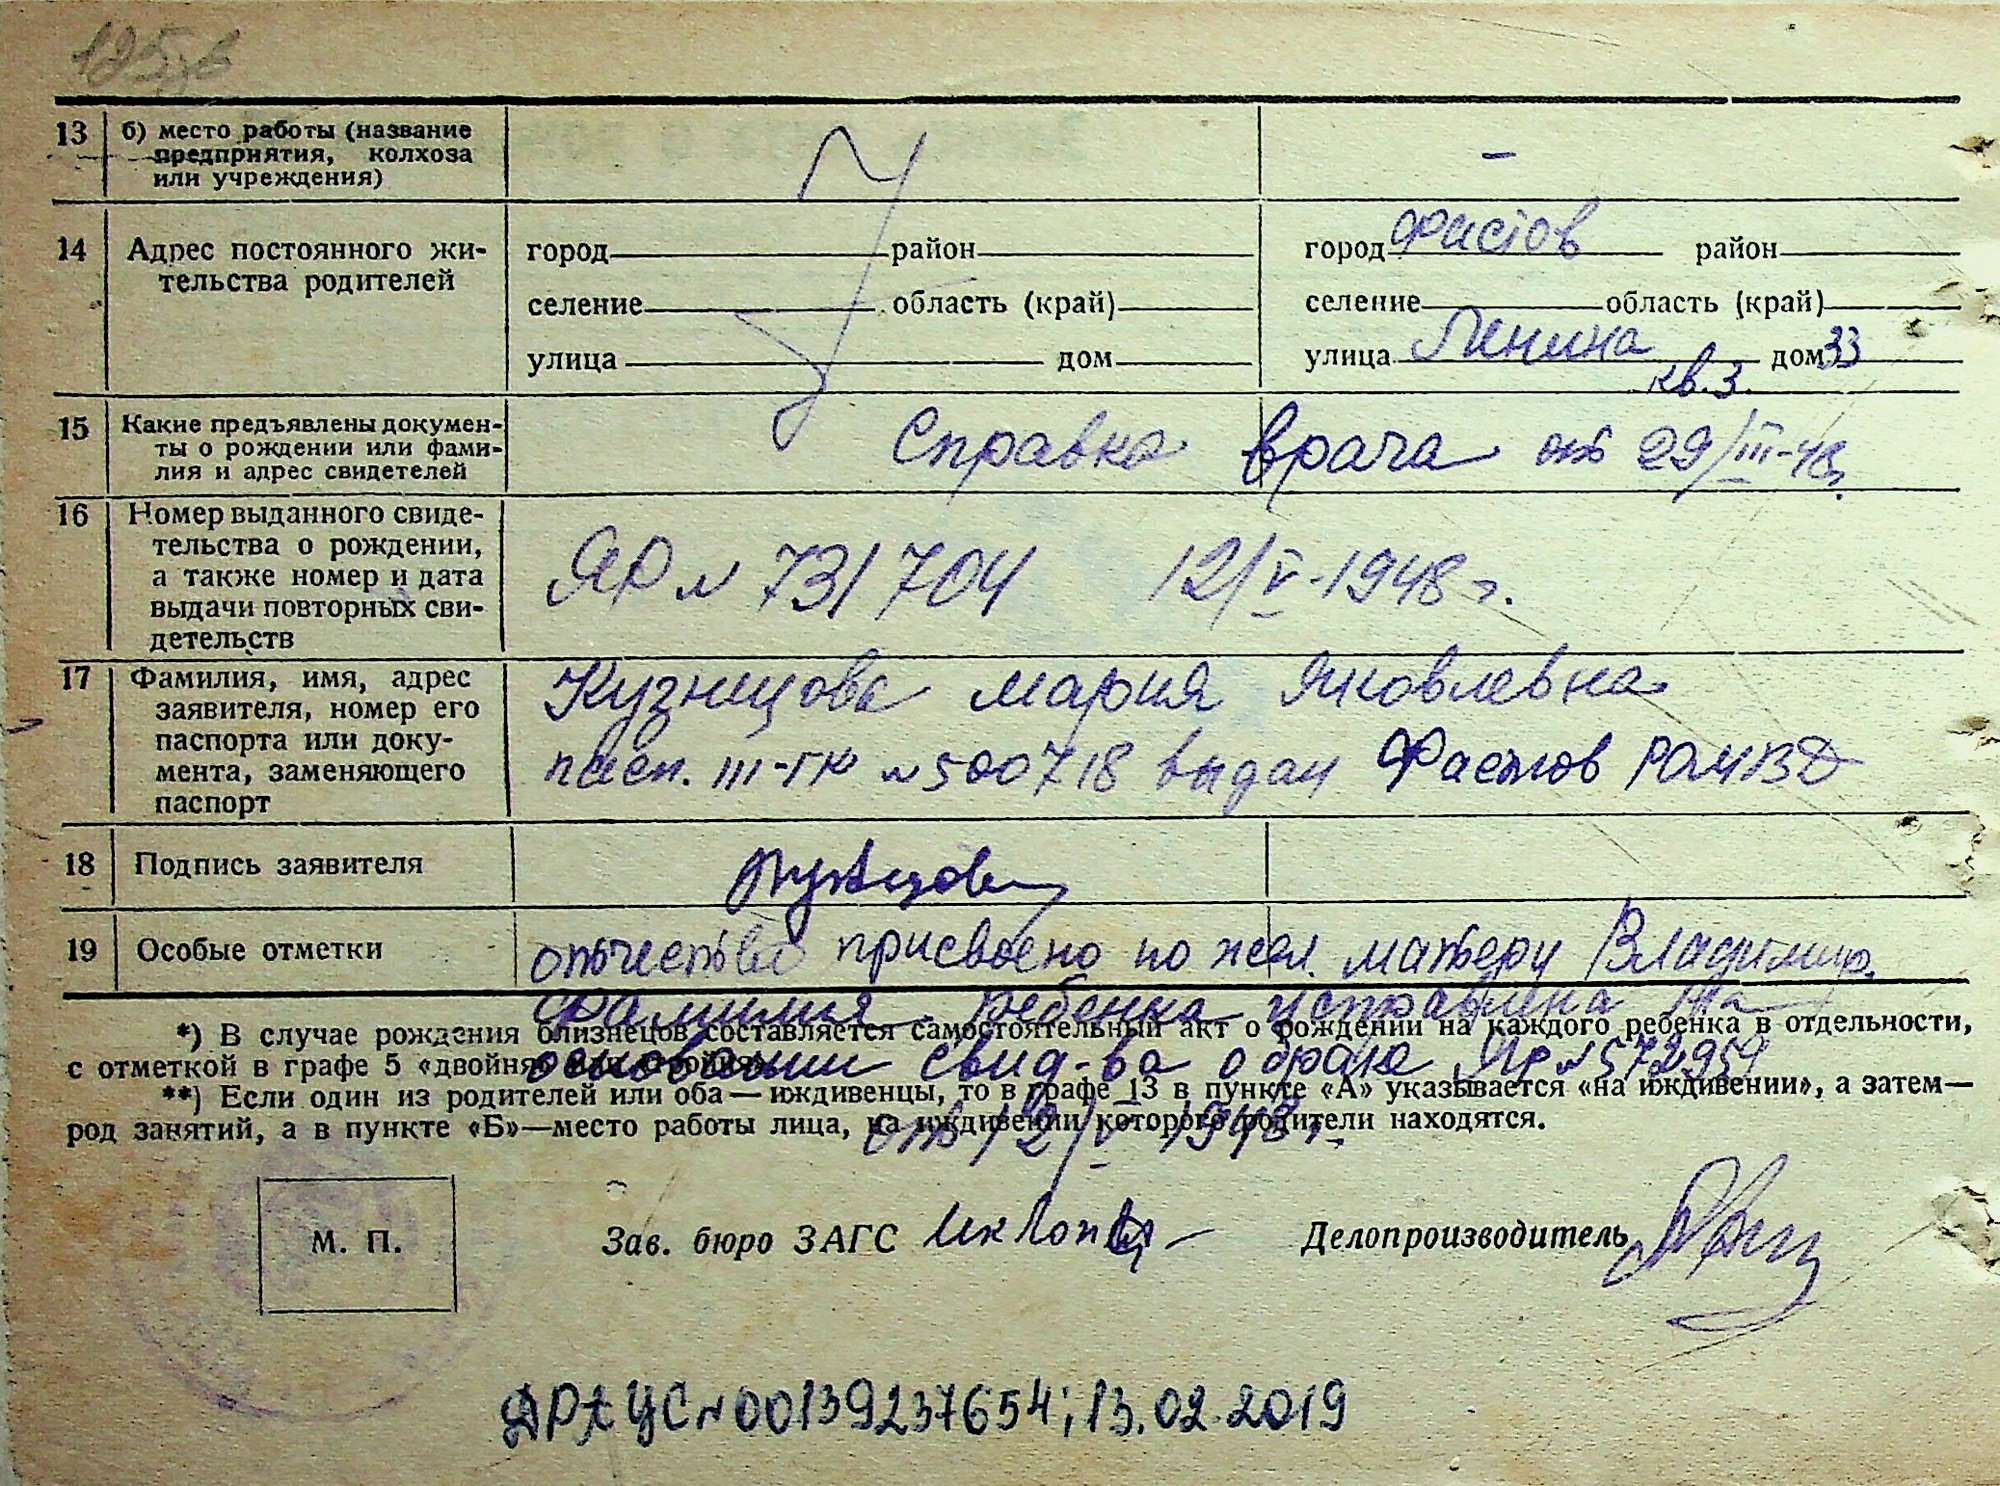 13 б) место работы (название
предприятия, колхоза
или учреждения)
–
14 Адрес постоянного жи-
тельства родителей
город район
селение область (край)
улица дом
город Фастов район
селение область (край)
улица Ленина дом 33
кв. 3.
15 Какие предъявлены докумен-
ты о рождении или фами-
лия и адрес свидетелей
Справка врача от 29/III-48
16 Номер выданного свиде-
тельства о рождении,
а также номер и дата
выдачи повторных сви-
детельств
ЯР № 731704 12/V-1948 г.
17 Фамилия, имя, адрес
заявителя, номер его
паспорта или доку-
мента, заменяющего
паспорт
Кузнецова Мария Яковлевна
пасп. III-ГК № 500718 выдан Фастов РОМВД
18 Подпись заявителя
Кузнецова
19 Особые отметки
отчество присвоено по жел. матери Владимир.
Фамилия ребенка исправлена на
основании свид-ва о браке ЯР № 572959
от 12/V 1948 г.
*) В случае рождения близнецов составляется самостоятельный акт о рождении на каждого ребенка в отдельности,
с отметкой в графе 5 «двойня» или «тройня».
**) Если один из родителей или оба — иждивенцы, то в графе 13 в пункте «А» указывается «на иждивении», а затем—
род занятий, а в пункте «Б»—место работы лица, на иждивении которого родители находятся.
М. П.
Зав. бюро ЗАГС
Делопроизводитель
ДРАЦС № 00139237654; 13.02.2019